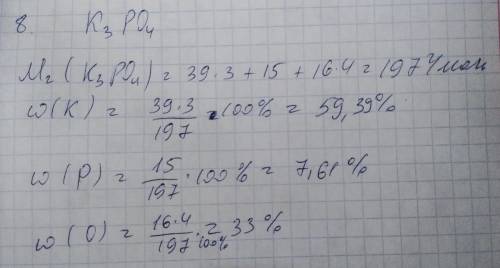 8. K₃PO₄
Mr (K₃PO₄) = 39·3 + 15 + 16·4 = 197 г/моль
ω(K) = 39·3/197 · 100% = 59,39%
ω(P) = 15/197 · 100% = 7,61%
ω(O) = 16·4/197 · 100% = 33%